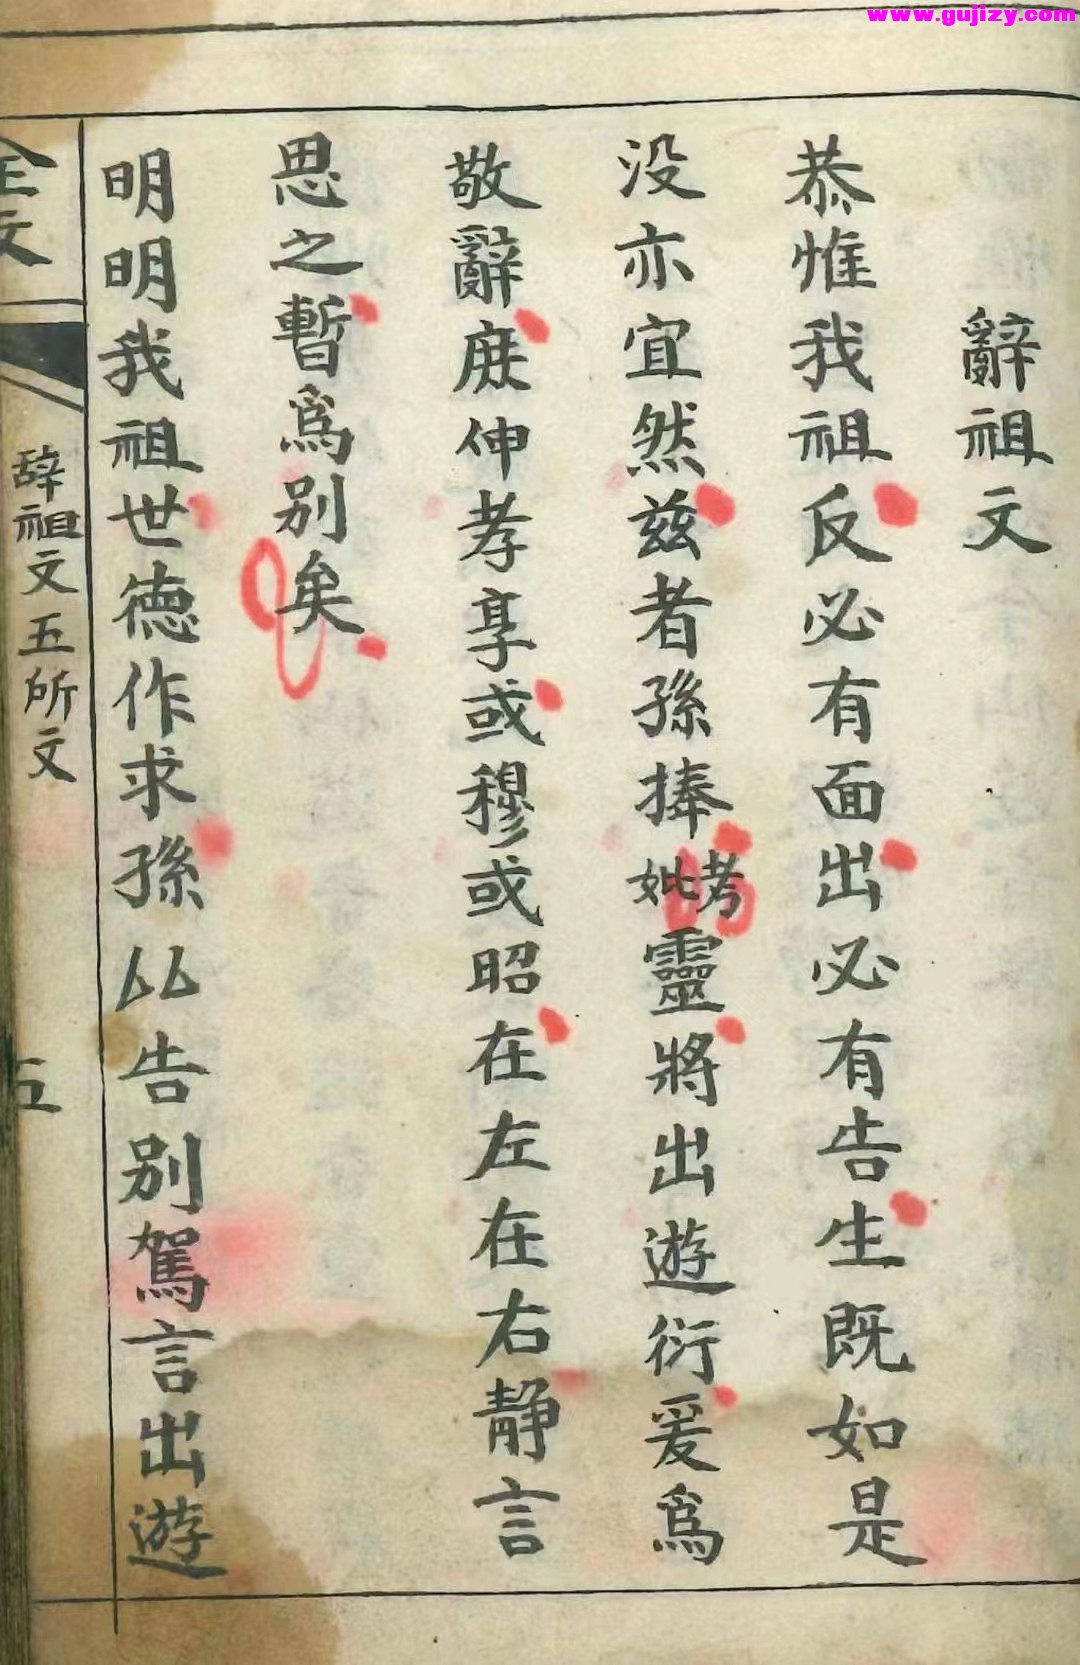 www.gujizy.com
辭祖文
恭惟我祖反必有面出必有告生既如是
没亦宜然兹者孫捧考妣靈將出遊衍爰爲
敬辭庶伸孝享或穆或昭在左在右静言
思之暫爲别矣
明明我祖世德作求孫㕥告别駕言出遊
全文
辞祖文五所文
五